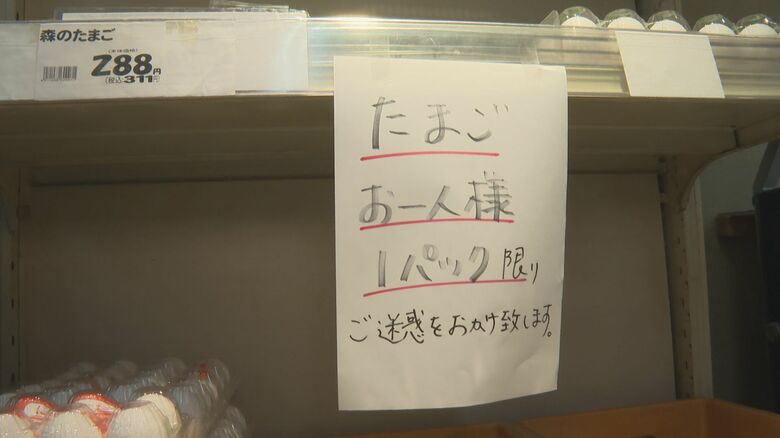 森のたまご
(本体価格)
288円
(税込)311円
たまご
お一人様
1パック限り
ご迷惑をおかけ致します。